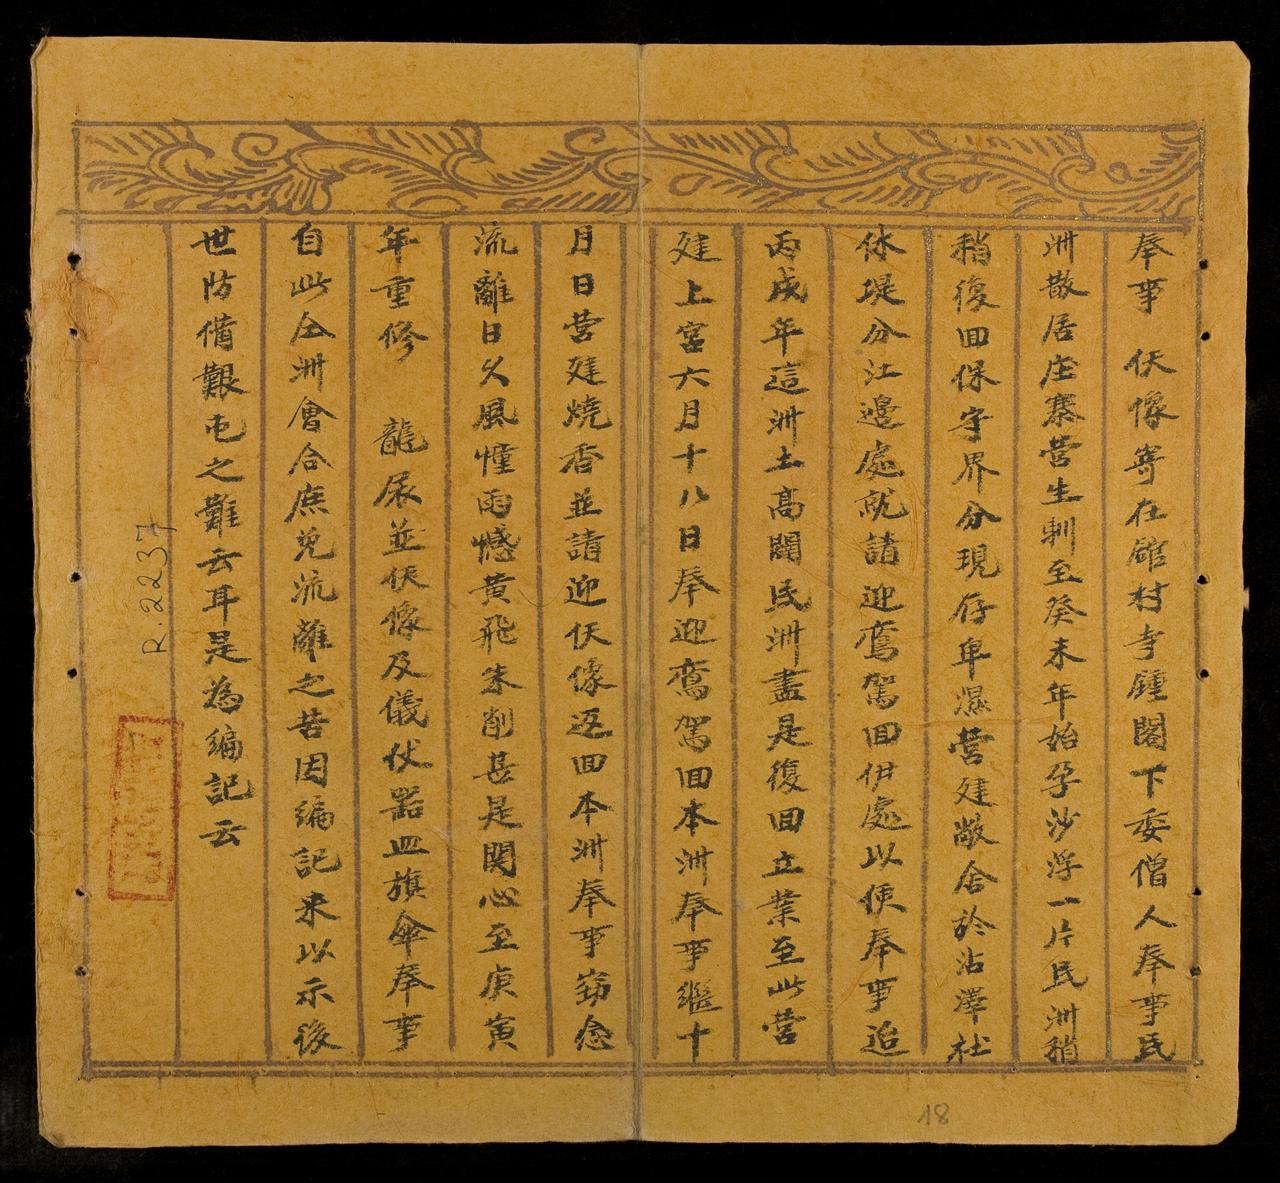 奉事 伏像寄在舘村寺鍾閣下委僧人奉事民
洲散居庄寨營生剰至癸未年始孕沙浮一片民洲稍
稍復回保守界分現存卑濕營建敞舍於沾澤社
休堤分江邊處就請迎鸞駕回伊處以便奉事迨
丙戌年這洲土高闊民洲盡是復回立業至此營
建上宮六月十八日奉迎鸞駕回本洲奉事繼十
月日營建燒香並請迎伏像返回本洲奉事窃念
流離日久風憧雨憾黄飛朱削甚是関心至庚寅
年重修 龍𢩜並伏像及儀仗器皿旗傘奉事
自此仝洲會合庶免流離之苦因編記来以示後
世防備艱屯之難云耳是為編記云
R.2237
18